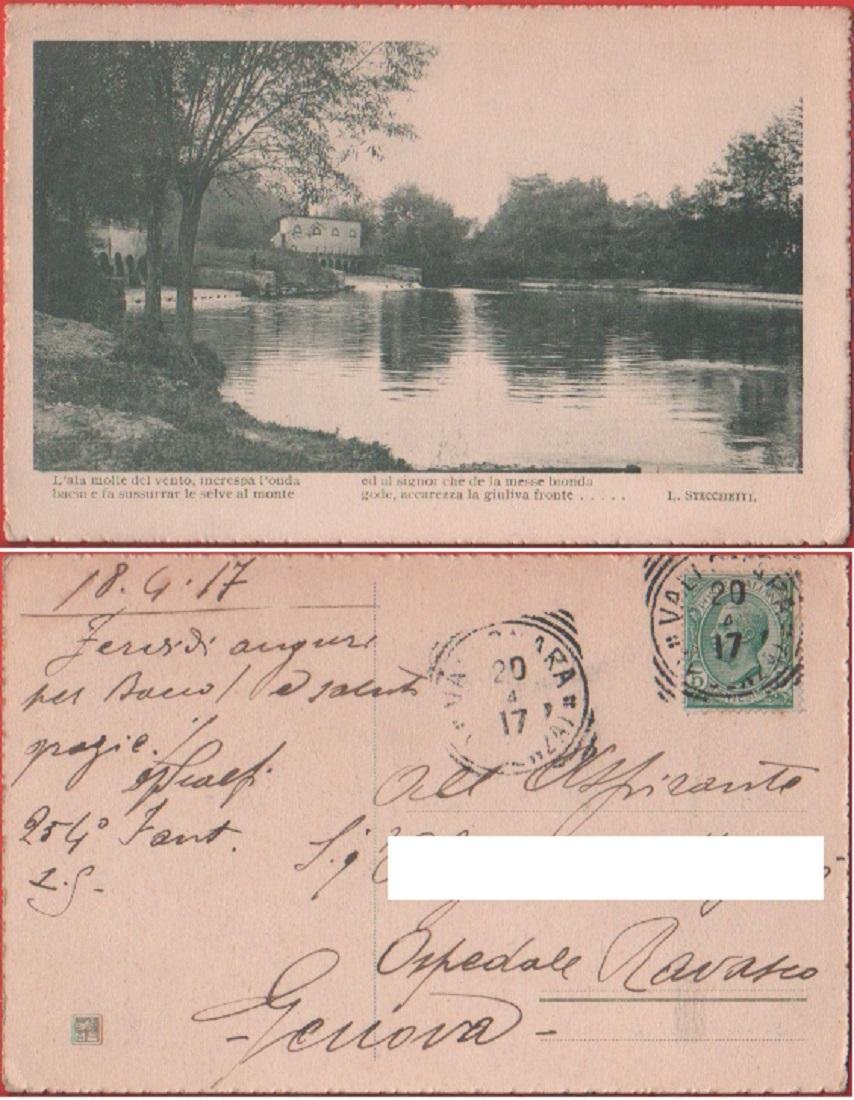 L'ala molle del vento, increspa l'onda
bacia e fa sussurrar le selve al monte
ed al signor che de la messe bionda
gode, accarezza la giuliva fronte . . . . .
L. STECCHETTI.
18.4.17
auguri
per
e saluti
grazie.
254° Fant.
20
4
17
20
4
17
All'Aspirante
Sig
Ospedale Ravasco
- Genova -